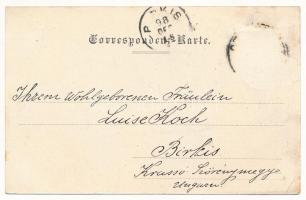 Correspondenz-Karte.
BIRKIS
98
DEC
Ihrem Wohlgeborenen Fräulein
Luise Koch
Birkis
Krassó Szörénymegye
Ungarn